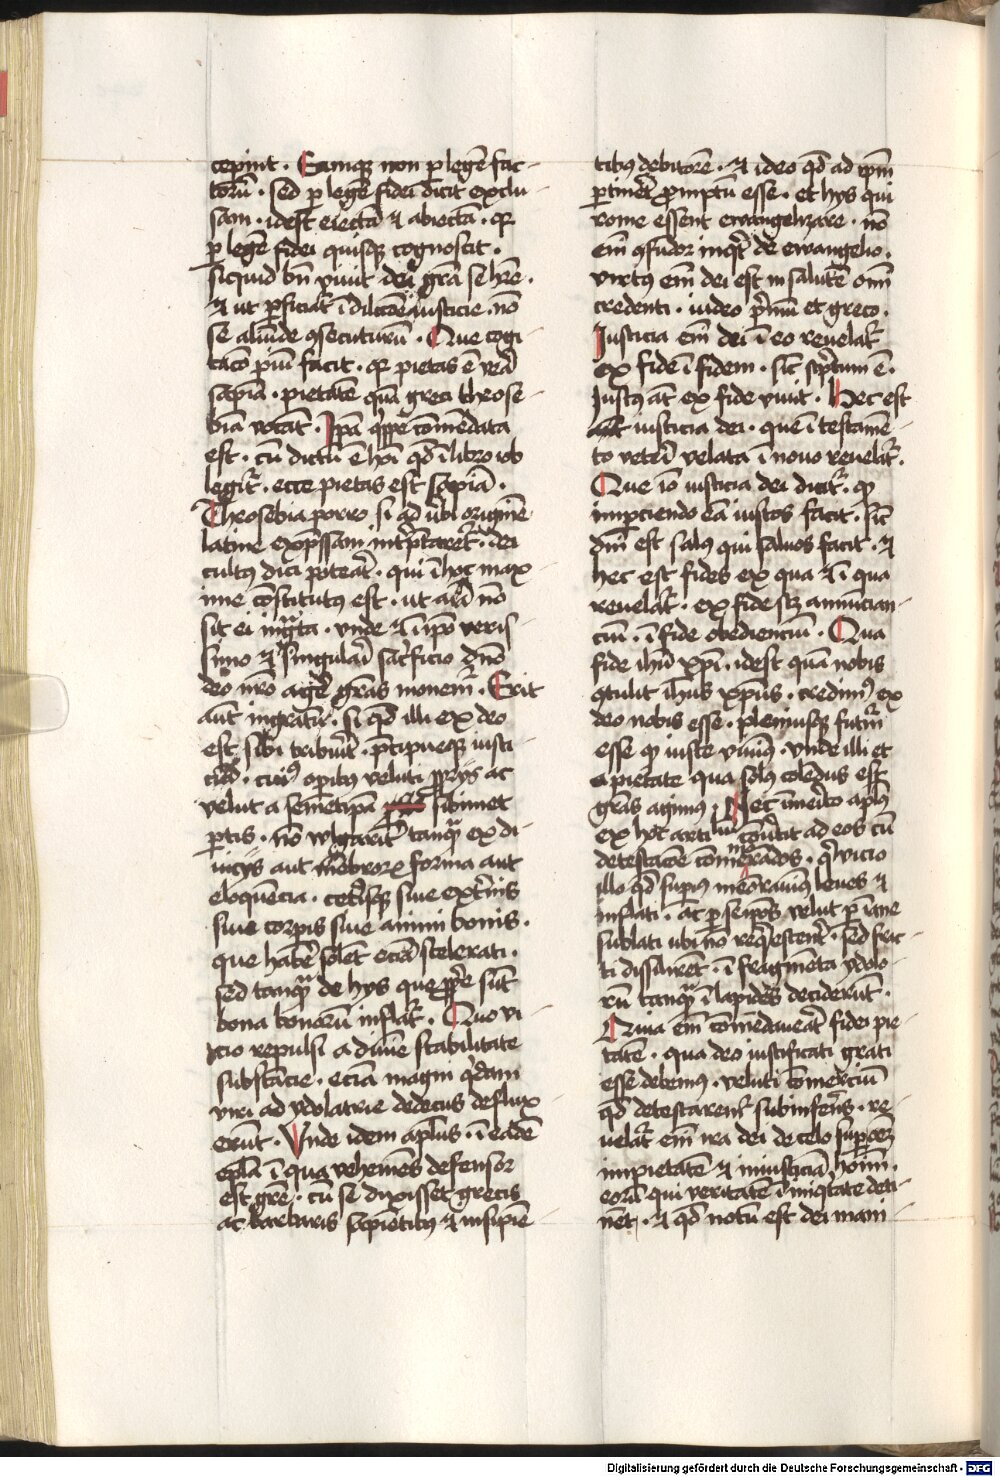 cepint . Eamq; non p legē fac-
torū . sed p legē fidei dicit exclu-
sam . idest eiectā ⁊ abiectā . q̇
p legē fidei quisq; cognoscit .
siquid bn̄ viuit dei grā se hr̄e .
⁊ ut p̱ficiat̄ ī dilcc̄oe iusticie . nō
se aliūde ꝯsecuturū . Que cogi-
tac̄o piū facit . q̇ pietas ē vera
sapīa . pietatē quā greci theose-
biā vocāt . Ip̄a q̇ppe cōmēdata
est . cū dictū ē hoī qd̄ ī libro iob
legit̄ . ecce pietas est sapīa .
Theosebia porro si ad v̄bi originē
latine exp̄ssam int̄p̄taret̄ . dei
cultus dici poterat̄ . qui ī hoc max-
ime cōstitutus est . ut aīa nō
sit ei ingᵃta . vnde ⁊ ī ip̄o veris-
simo ⁊ singulari sac̄ficio dn̄o
deo nr̄o agēr̄ grās monem̄ . Erit
aūt ingrata . si qd̄ illi ex deo
est sibi tribuīt . p̄cipueq; iusti-
ciā . cuiꝰ opibus veluti pprijs ac
velut a semetipā sibimet
ptis . nō vlgarit̄ tanqᵃ ex di-
uicijs aut mēbroꝝ forma aut
eloquēcia . cet̄isq; siue ext̄nis
siue corpis siue animi bonis .
que habēr̄ solēt eciā scelerati .
sed tanqᵃ de hys que ppe sūt
bona bonorū inflat̄ . Quo vi-
cio repulsi a diuīe stabilitate
substācie . eciā magni q̇dam
viri ad ydolatrie dedecus deflux-
erūt . Vnde idem apl̄us . ī eadē
epl̄a ī qua vehemēs defensor
est gr̄e . cū se dixisset grecis
ac barbaris sapiētibꝰ ⁊ insipiē-
tibꝰ debitorē . ⁊ ideo qd̄ ad ip̄m
ptinēr̄ promptū esse . et hys qui
rome essent ewangelizare . nō
em̄ ꝯfudor inqt̄ de ewangelio .
virtus em̄ dei est in salutē om̄i
credenti . iudeo p̄mū et greco .
Iusticia em̄ dei ī eo reuelat̄
ex fide ī fidem . sic̄ sc̄ptum ē .
Iustꝰ āt ex fide viuit . Hec est
iusticia dei . que ī testamē-
to vet̄i velata ī nouo reuelat̄ .
Que iō iusticia dei dicit̄ . q̇
imp̱ciendo eā iustos facit . sic̄
dn̄i est salꝰ qui saluos facit . ⁊
hec est fides ex qua ⁊ ī qua
reuelat̄ . ex fide scz annūcian-
ciū . ī fide obedienciū . Qua
fide ih̄u xp̄i . idest quā nobis
ꝯtulit ih̄us xp̄us . credimꝰ ex
deo nobis esse . pleniusq; futur̄
esse q̇ iuste viuimꝰ . vnde illi et
pietate qua solus colēdus est
grās agimus . Nec īmeito apl̄us
ex hoc articulū cōu̇tit ad eos cū
detestac̄oe cōmēorādos . q̇ vicio
illo qd̄ supius mēorauimꝰ leues ⁊
inflati . ac p seip̄os velut p inane
sublati ubi nō reqescent̄ . sed frac-
ti dissilirēt . ī fragmēta ydolo-
rū tanqᵃ ī lapides deciderūt .
Quia em̄ cōmēdauerat̄ fidei pie-
tatē . qua deo iustificati grati
esse debemus . veluti
qd̄ detestarent̄ subinferēs . re-
uelat̄ em̄ ira dei de celo sup oēz
impietatē ⁊ iniusticiā hoīm .
eorū qui veritatē ī iniqtate deti-
nēt . ⁊ qd̄ notū est dei mani-
Digitalisierung gefördert durch die Deutsche Forschungsgemeinschaft - DFG